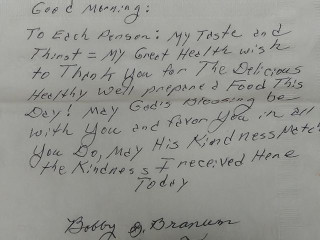 Good Morning:
To Each Person: My Taste and
Thirst = My Great Health wish
to Thank You for The Delicious
Healthy Well prepared Food This
Day! May God's Blessing be
with You and favor You in all
You Do, May His Kindness Match
the Kindness I received Here
Today
Bobby